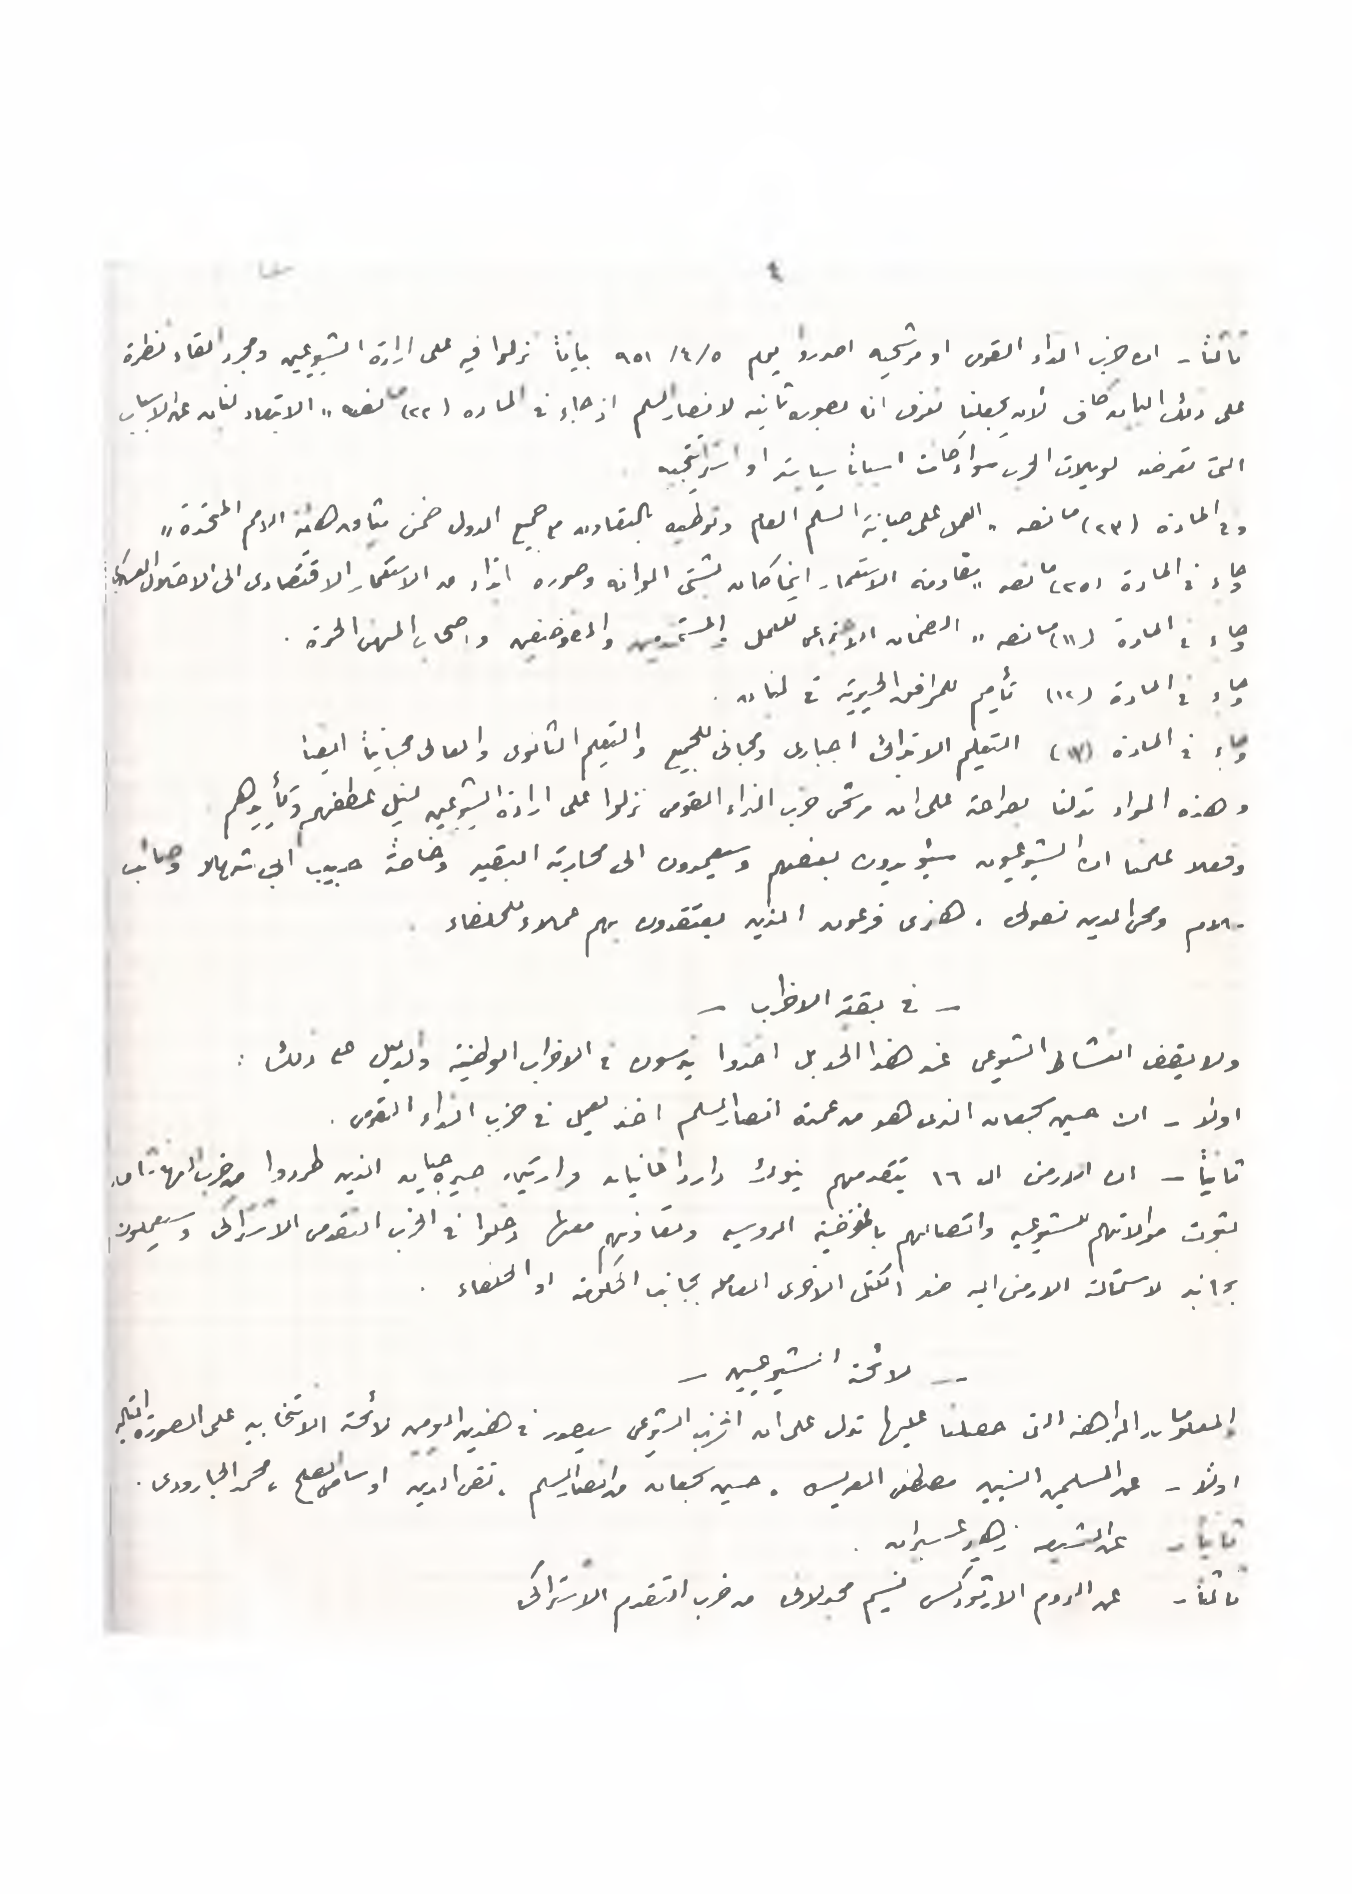 ٤
ثالثا - ان حزب النداء القومي او مرشحيه اصدروا يوم ٥/٤/٩٥١ بياناً نزلوا فيه على ارادة الشيوعيين ومجرد القاء نظرة
على ذلك البيان كاف لأن يجعلنا نعرف انه بصورة ثانية لانصار السلم اذ جاء في المادة (٢٢) ما نصه " الابتعاد لبنان عن الاسباب
التي تعرضه لويلات الحرب سواء كانت اسباباً سياسية او استراتيجية
وفي المادة (٢٣) ما نصه " العمل على صيانة السلم العام وتوطيده بالتعاون مع جميع الدول ضمن ميثاق هيئة الامم المتحدة "
وجاء في المادة (٢٥) ما نصه " مقاومة الاستعمار اينما كان بشتى الوانه وصوره ابتداء من الاستعمار الاقتصادي الى الاحتلال العسكري
وجاء في المادة (١١) ما نصه " الضمان الاجتماعي للعمل والمستخدمين والموظفين واصحاب المهن الحرة .
وجاء في المادة (١٢) تأميم للمرافق الحيوية في لبنان .
وجاء في المادة (١٧) التعليم الابتدائي اجباري ومجاني للجميع والتعليم الثانوي والعالي مجانياً ايضا
وهذه المواد تدلنا بصراحة على ان مرشحي حزب النداء القومي نزلوا على ارادة الشيوعيين لنيل عطفهم وتأييدهم
وفعلا علمنا ان الشيوعيون سيؤيدون بعضهم وسيعمدون الى محاربة البقية وخاصة حبيب ابي شهلا وصائب
سلام ومحي الدين نصولي ، هنري فرعون الذين يعتقدون بهم عملاء للحلفاء
- في بقية الاحزاب -
ولا يقف النشاط الشيوعي عند هذا الحد بل اخذوا يندسون في الاحزاب الوطنية والدليل على ذلك :
اولا - ان حسين سجعان الذي هو من عمدة انصار السلم اخذ يعمل في حزب النداء القومي .
ثانياً - ان الارمن ال ١٦ يتقدمهم الذين طردوا من حزب
بثبوت موالاتهم للشيوعية واتصالهم بالمفوضية الروسية وتعاونهم معها دخلوا في الحزب التقدمي الاشتراكي وسيعملون
بجانبه لاستمالة الارمن اليه ضد الكتل الاخرى العاملة بجانب الحكومة او الحلفاء .
- لائحة الشيوعيين -
والمعلومات الراهنة التي حصلنا عليها تدل على ان الحزب الشيوعي سيصدر في هذين اليومين لائحة الانتخابية على الصورة التالية
اولا - عن المسلمين السنيين مصطفى العريس ، حسين سجعان من انصار السلم ، تقي الدين او سامي الصلح ، محمد الجارودي .
ثانيا - عن الشيعة زهير عسيران .
ثالثا - عن الروم الارثوذكس نسيم مجدلاني من حزب التقدم الاشتراكي